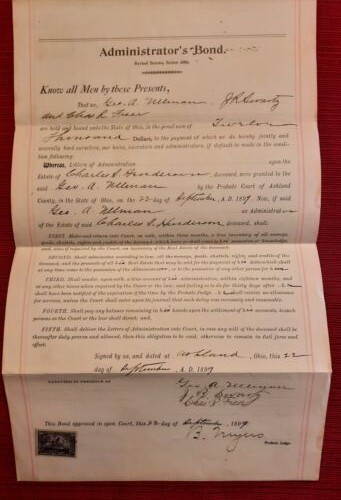 Administrator's Bond.
Revised Statutes, Section 6006.
Know all Men by these Presents,
That we, Geo. A. Ullman J R Swartz
and Chas R. Freer
are held and bound unto the State of Ohio, in the penal sum of
Thousand Dollars, to the payment of which we do hereby jointly and
severally bind ourselves, our heirs, executors and administrators, if default be made in the con-
dition following:
Whereas, Letters of Administration upon the
Estate of Charles S. Henderson deceased, were granted to the
said Geo. A. Ullman by the Probate Court of Ashland
County, in the State of Ohio, on the 22 day of September A. D. 1899. Now, if said
Geo. A. Ullman as Administrator
of the Estate of said Charles S. Henderson deceased, shall:
FIRST. Make and return
SECOND. Shall administer according to law, all the moneys, goods, chattels, rights and credits of the deceased,
and the proceeds of all Real Estate that may be sold for the payment of debts which shall
at any time come to the possession of the Administrator, or to the possession of any other person for
THIRD. Shall render, upon oath, a true account of administration, within eighteen months, and
at any other times when required by the Court or the law; and failing so to do for thirty days after
shall have been notified of the expiration of the time by the Probate Judge, shall receive no allowance
for services, unless the Court shall enter upon its journal that such delay was necessary and reasonable.
FOURTH. Shall pay any balance remaining in hands upon the settlement of accounts, to such
persons as the Court or the law shall direct; and,
FIFTH. Shall deliver the Letters of Administration into Court, in case any will of the deceased shall be
thereafter duly proven and allowed, then this obligation to be void, otherwise to remain in full force and
effect.
Signed by us, and dated at Ashland, Ohio, this 22
day of September A. D. 1899
EXECUTED IN PRESENCE OF
Geo. A. Ullman
J R Swartz
Chas R Freer
This Bond approved in open Court, this 22 day of September 1899
Myers
Probate Judge.